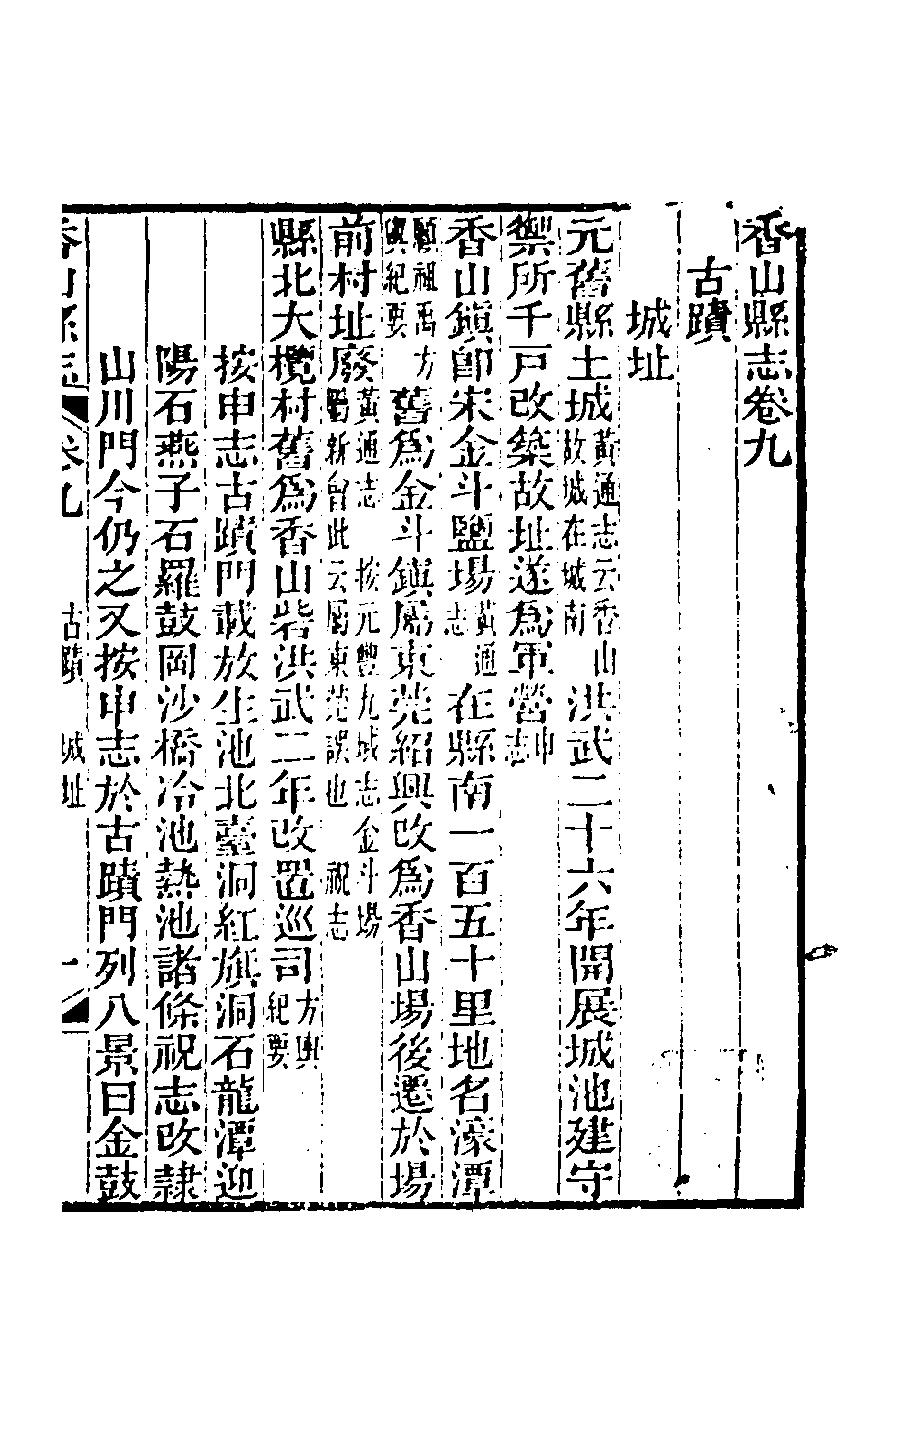 香山縣志卷九
古蹟
城址
元舊縣土城黃通志云香山故城在城南洪武二十六年開展城池建守
禦所千戸改築故址遂爲軍營申志
香山鎭卽宋金斗鹽場黃通志在縣南一百五十里地名濠潭
顧祖禹方輿紀要舊爲金斗鎭屬東莞紹興改爲香山場後遷於場
前村址廢黃通志　按元豐九域志金斗場屬新會此云屬東莞誤也　祝志
縣北大欖村舊爲香山砦洪武二年改置巡司方輿紀要
按申志古蹟門載放生池北臺洞紅旗洞石龍潭迎
陽石燕子石羅鼓岡沙橋冶池熱池諸條祝志改隷
山川門今仍之又按申志於古蹟門列八景曰金鼓
香山縣志 卷九 古蹟 城址 一